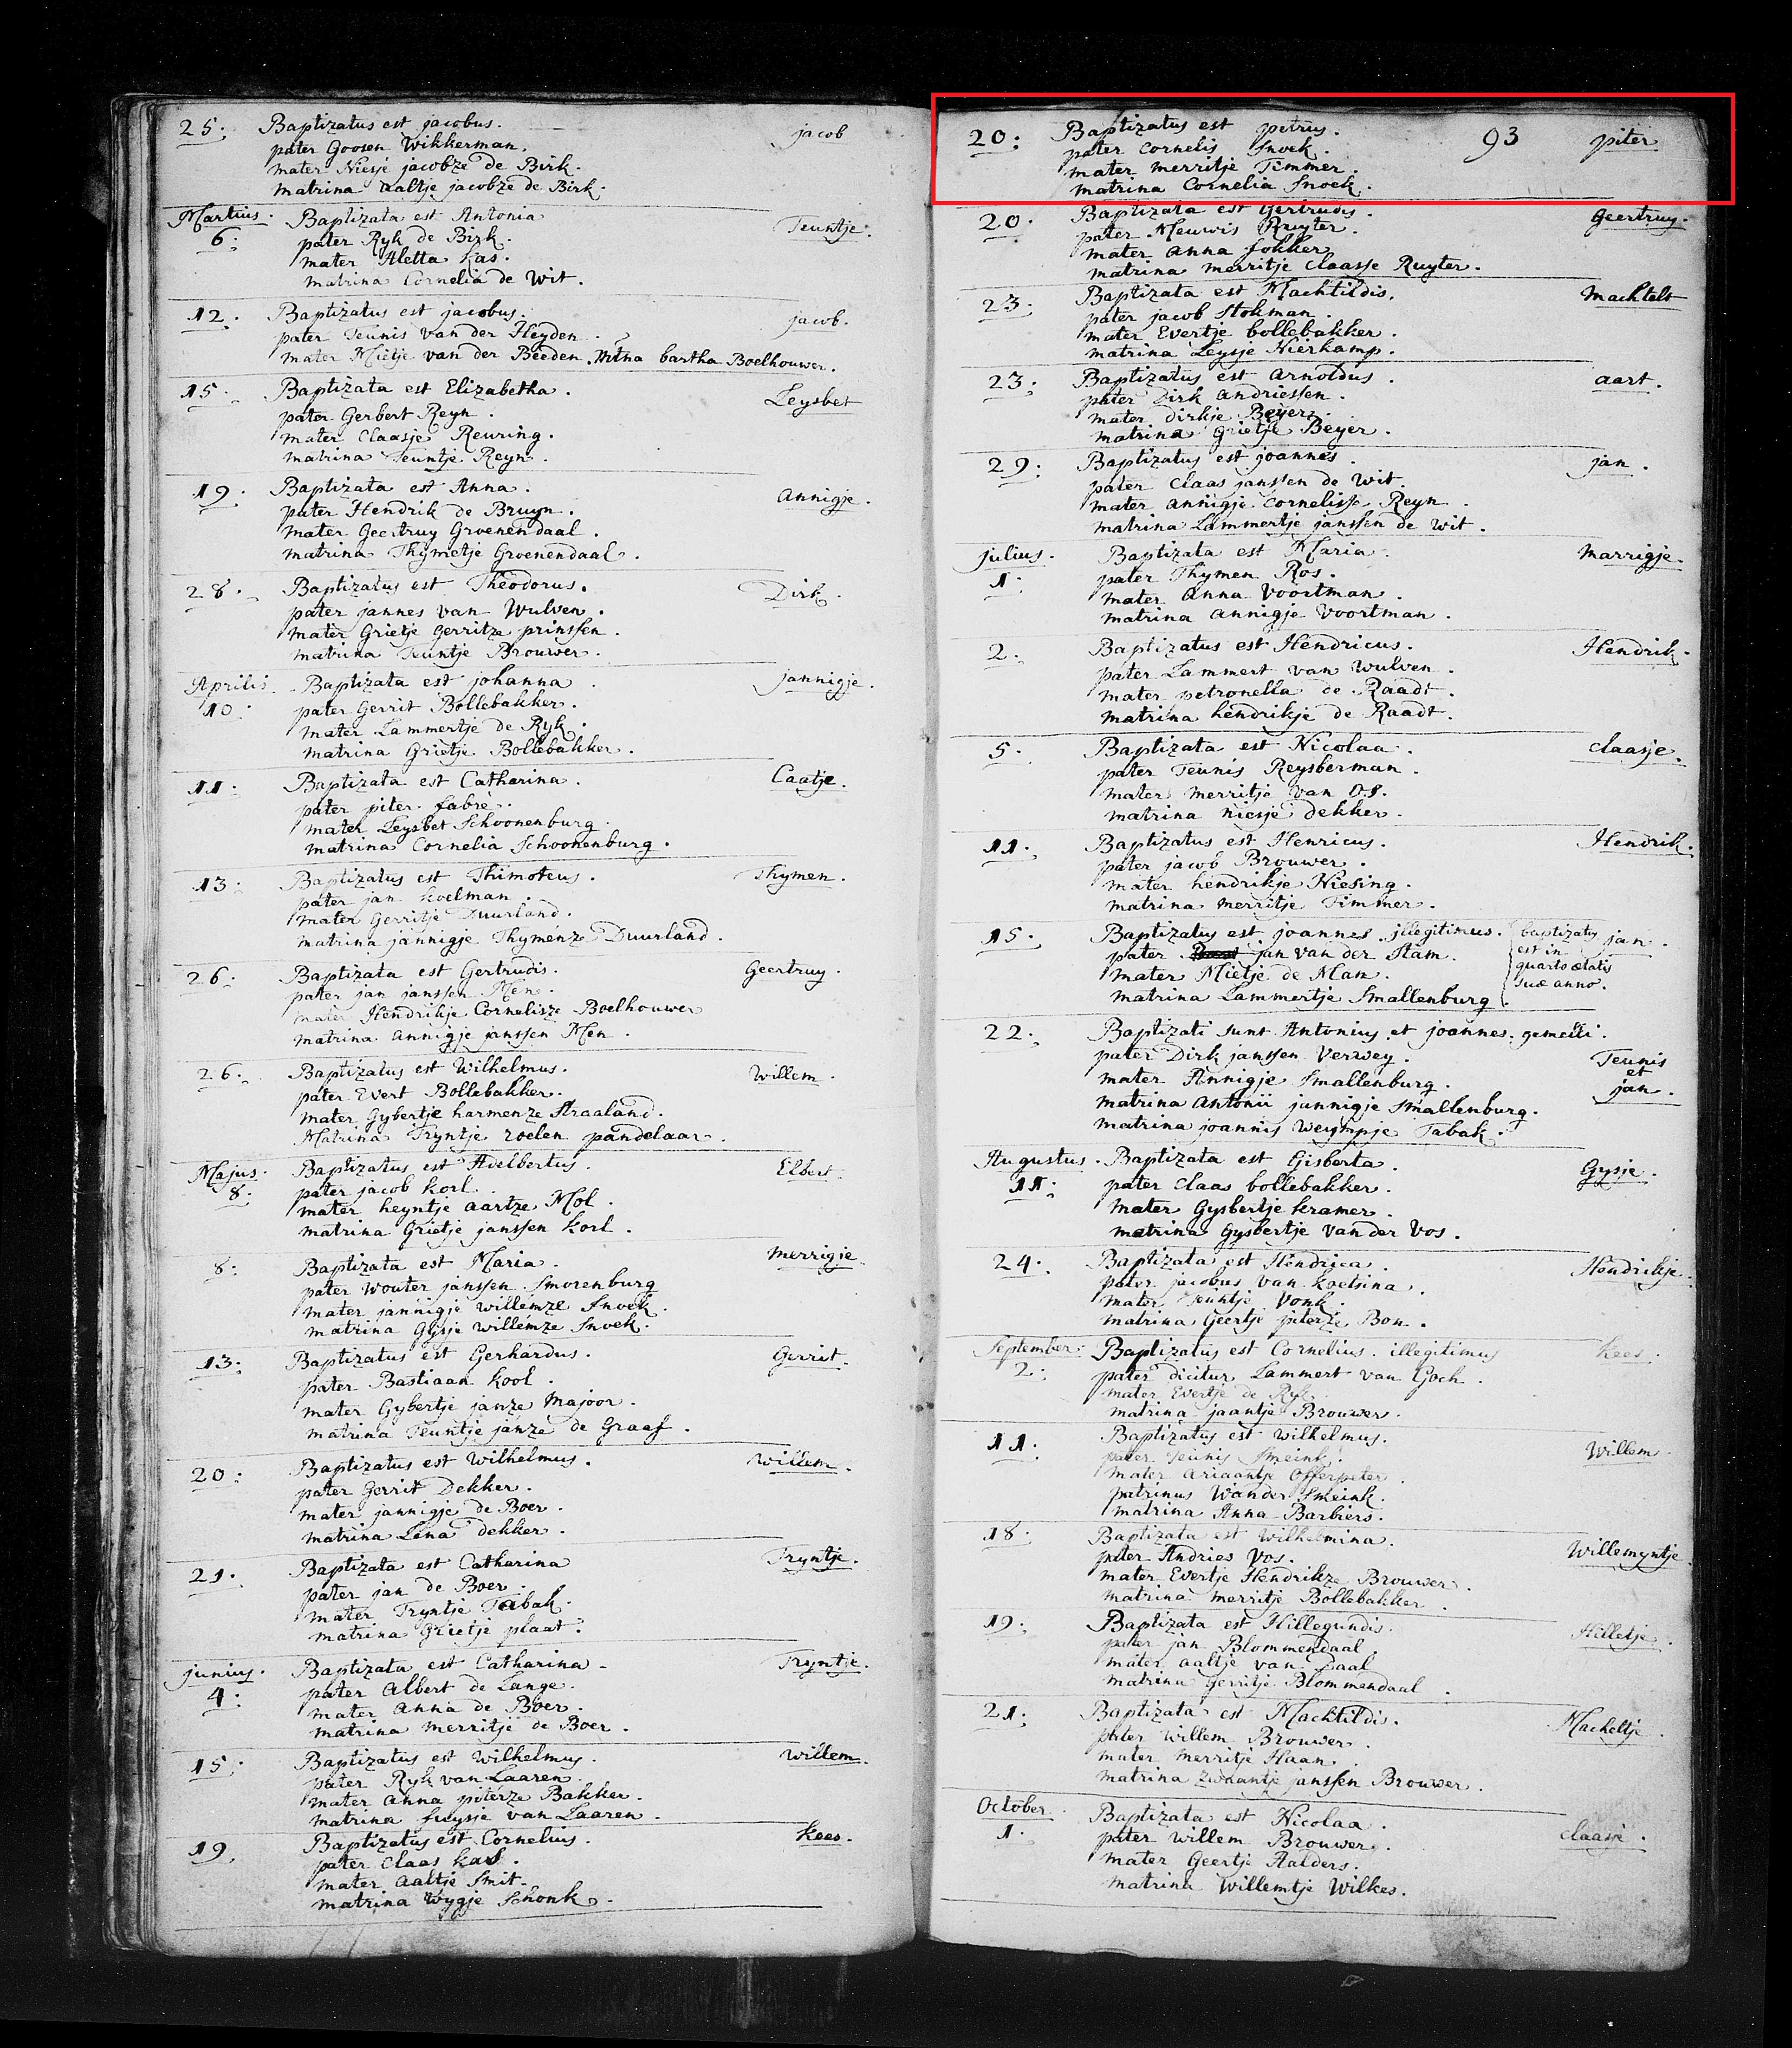 25: Baptizatus est jacobus. jacob
pater Goosen Wikkerman.
mater Niesje jacobze de Birk.
matrina aaltje jacobze de Birk.
Martius. Baptizata est Antonia Teuntje.
6: pater Ryk de Birk.
mater Aletta Kas.
matrina Cornelia de Wit.
12: Baptizatus est jacobus. jacob.
pater Teunis van der Heyden.
mater Mietje van der Beeden. Mtna bartha Boelhouwer.
15: Baptizata est Elizabetha. Leysbet
pater Gerbert Reyn.
mater Claasje Reuring.
matrina Teuntje Reyn.
19: Baptizata est Anna. Annigje.
pater Hendrik de Bruyn.
mater Geertruy Groenendaal.
matrina Thymetje Groenendaal.
28. Baptizatus est Theodorus. Dirk.
pater jannes van Wulven.
mater Grietje Gerritze prinssen.
matrina Teuntje Brouwer.
Aprilis. Baptizata est johanna. jannigje.
10: pater Gerrit Bollebakker.
mater Lammertje de Ryk.
matrina Grietje Bollebakker.
11: Baptizata est Catharina. Caatje.
pater piter fabre.
mater Leysbet Schoonenburg.
matrina Cornelia Schoonenburg.
13: Baptizatus est Thimoteus. Thymen.
pater jan koelman.
mater Gerritje Duurland.
matrina jannigje Thymenze Duurland.
26: Baptizata est Gertrudis. Geertruy.
pater jan janssen Men.
mater Hendrikje Cornelisze Boelhouwer
matrina annigje janssen Men.
26: Baptizatus est Wilhelmus. Willem.
pater Evert Bollebakker.
mater Gybertje harmenze Straaland.
Matrina Tryntje roelen pandelaar.
Majus. Baptizatus est Adelbertus. Elbert.
8. pater jacob korl.
mater heyntje aartze Mol.
matrina Grietje janssen korl.
8: Baptizata est Maria. Merrigje.
pater Wouter janssen Smorenburg
mater jannigje willemze Snoek.
matrina Gysje willemze Snoek.
13: Baptizatus est Gerhardus. Gerrit.
pater Bastiaan kool.
mater Gybertje janze Majoor.
matrina Teuntje janze de Graaf.
20: Baptizatus est Wilhelmus. Willem.
pater Gerrit Dekker.
mater jannigje de Boer.
matrina Lena dekker.
21. Baptizata est Catharina Tryntje.
pater jan de Boer.
mater Tryntje Tabak.
matrina Grietje plaat.
junius. Baptizata est Catharina. Tryntje.
4: pater Albert de Lange.
mater anna de Boer.
matrina merritje de Boer.
15: Baptizatus est Wilhelmus. Willem.
pater Ryk van Laaren.
mater anna piterze Bakker.
matrina van Laaren.
19. Baptizatus est Cornelius. Kees.
pater Claas kas.
mater aaltje Smit.
matrina Wygje Schonk.
20: Baptizatus est petrus. 93 piter
pater Cornelis Snoek.
mater merritje Timmer.
matrina Cornelia Snoek.
20. Baptizata est Gertrudis. Geertruy.
pater Meuwis Ruyter.
mater anna fokker
matrina merritje Claasse Ruyter.
23: Baptizata est Machtildis. Machtelt
pater jacob Stokman.
mater Evertje bollebakker.
matrina Leysje Nierkamp.
23: Baptizatus est Arnoldus. aart.
pater Dirk andriessen.
mater dirkje Beyer.
matrina Grietje Beyer.
29: Baptizatus est joannes. jan.
pater Claas janssen de Wit.
mater annigje Cornelisse Reyn.
matrina Lammertje janssen de Wit.
julius. Baptizata est Maria. Marrigje.
1. pater Thymen Ros.
mater Anna Voortman.
matrina annigje Voortman.
2. Baptizatus est Hendricus. Hendrik.
pater Lammert van Wulven.
mater petronella de Raadt.
matrina hendrikje de Raadt.
5. Baptizata est Nicolaa. Claasje.
pater Teunis Reysberman.
mater merritje van Os.
matrina niesje dekker.
11: Baptizatus est Henricus. Hendrik.
pater jacob Brouwer.
mater hendrikje Niesing.
matrina merritje Timmer.
15: Baptizatus est joannes. jllegitimus. baptizatus jan.
pater jan van der Stam. est in
mater Mietje de Man. quarto ætatis
matrina Lammertje Smallenburg suæ anno.
22: Baptizati sunt Antonius et joannes. gemelli.
pater Dirk janssen Verwey. Teunis
mater Annigje Smallenburg. et
matrina Antonii jannigje Smallenburg. jan.
matrina joannis Weympje Tabak.
Augustus. Baptizata est Gisberta. Gysje.
11: pater Claas bollebakker.
mater Gysbertje kramer.
matrina Gysbertje van der Vos.
24: Baptizata est Hendrica. Hendrikje.
pater jacobus van koetsina.
mater Teuntje Vonk.
matrina Geertje piterze Bon.
September. Baptizatus est Cornelius. illegitimus Kees.
2. pater dicitur Lammert van Goch.
mater Evertje de Ryk.
matrina jaantje Brouwer.
11: Baptizatus est Wilhelmus. Willem.
pater Teunis Smeink.
mater ariaantje Offerpeter.
patrinus Wander Smeink.
matrina Anna Barbiers.
18: Baptizata est Wilhelmina. Willemyntje
pater Andries Vos.
mater Evertje Hendrikze Brouwer.
matrina merritje Bollebakker.
19: Baptizata est Hillegundis. Hilletje.
pater jan Blommendaal
mater aaltje van Daal
matrina Gerritje Blommendaal.
21: Baptizata est Machtildis. Macheltje
pater Willem Brouwer.
mater merritje Haan.
matrina Zwaantje janssen Brouwer.
October. Baptizata est Nicolaa. Claasje.
1. pater Willem Brouwer.
mater Geertje Aalders.
matrina Willemtje Wilkes.